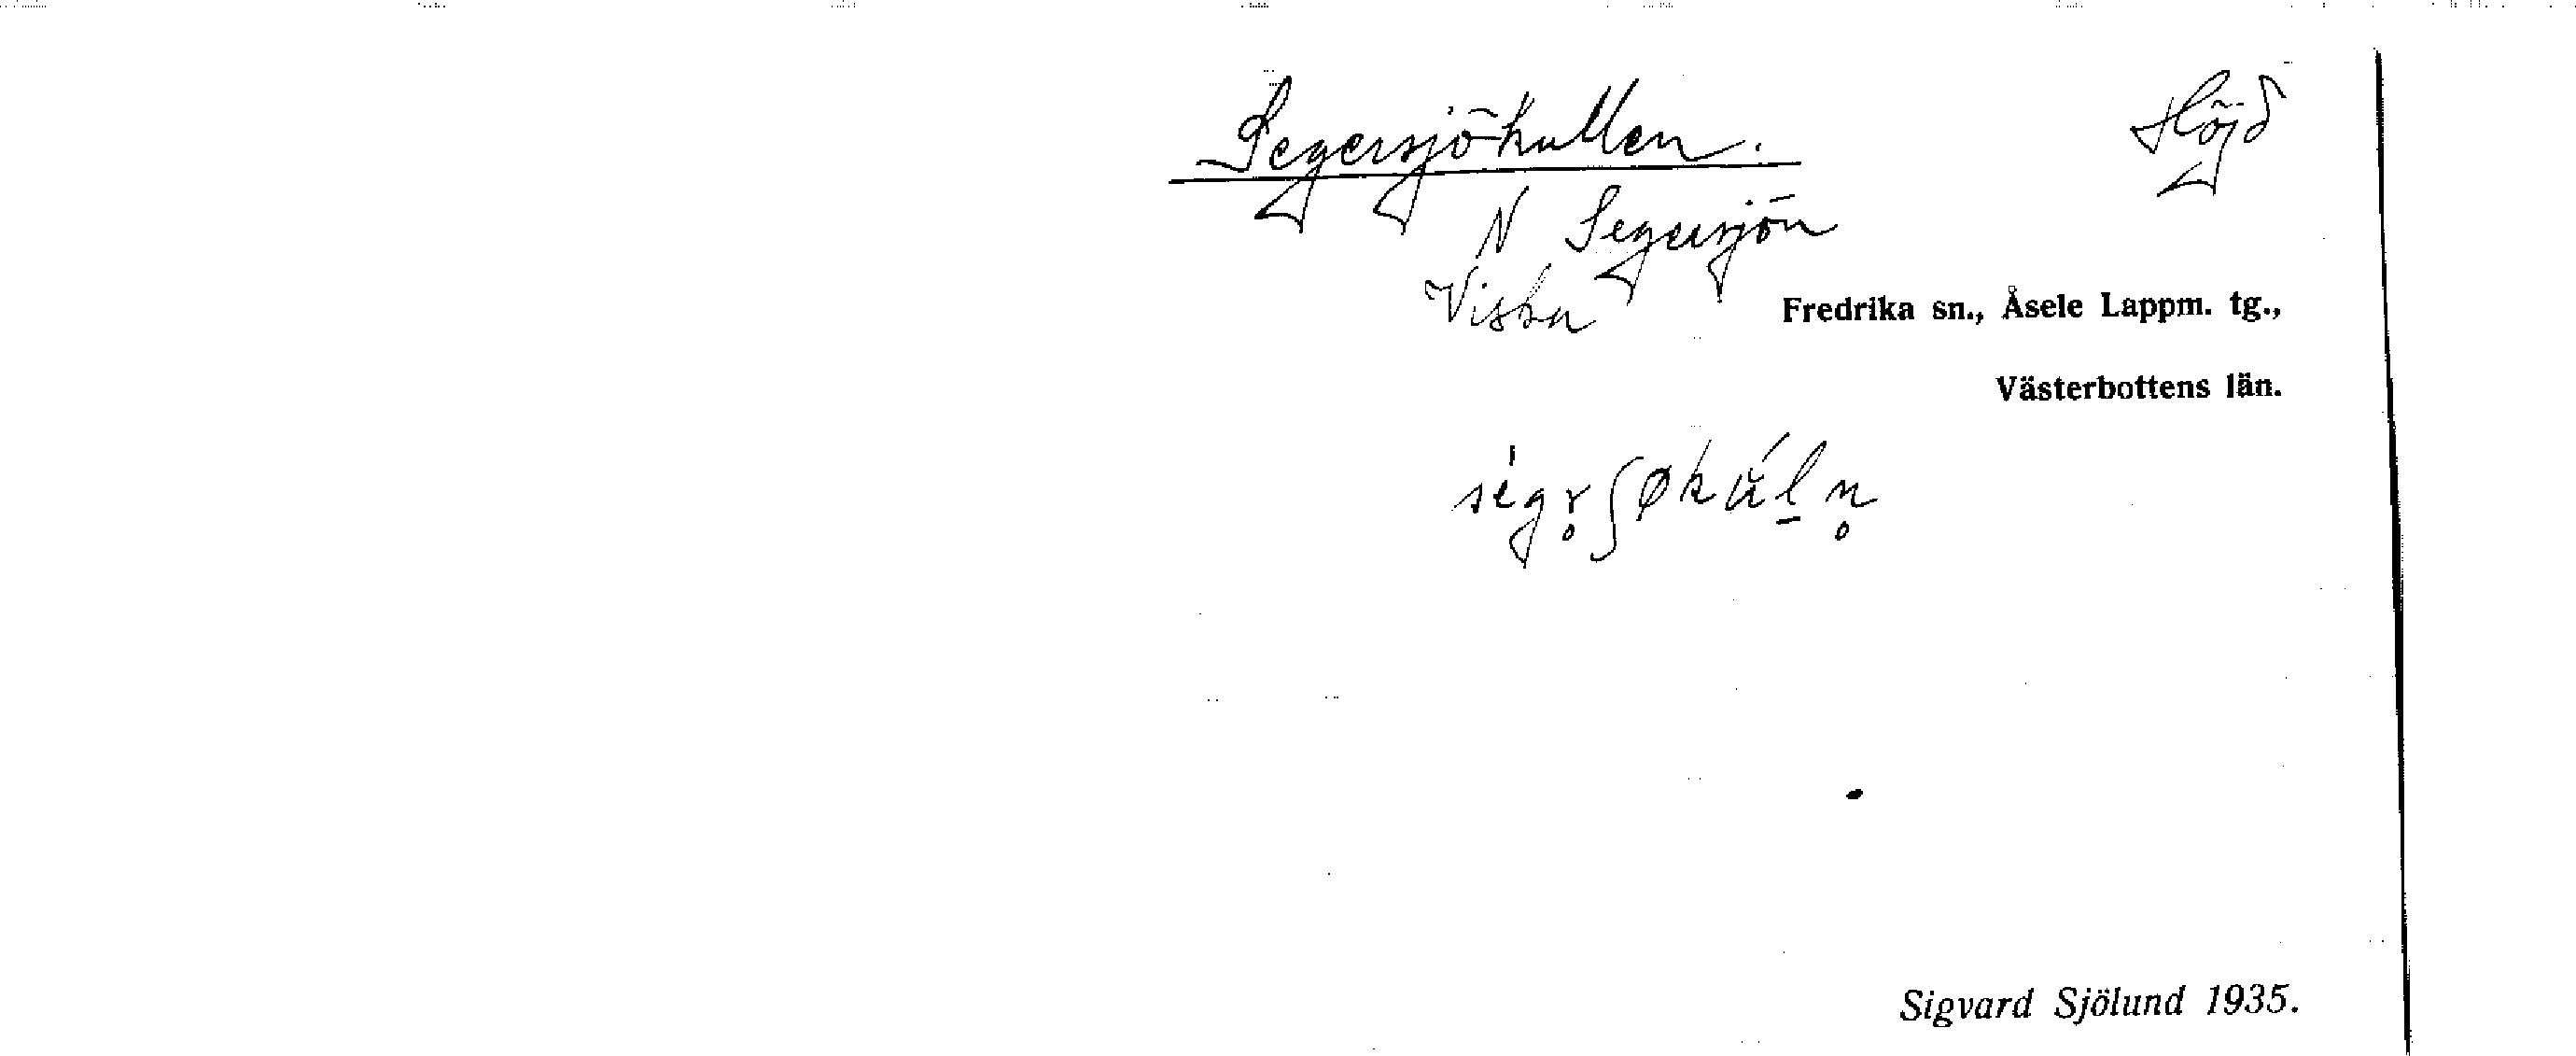 Segersjökullen.
Höjd
N Segersjön
Viska
Fredrika sn., Åsele Lappm. tg.,
Västerbottens län.
Sigvard Sjölund 1935.